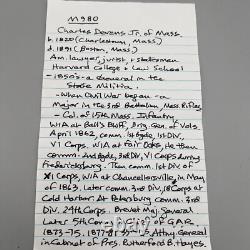 M980
Charles Devens Jr. of Mass.
b. 1820 (Charlestown, Mass)
d. 1891 (Boston, Mass)
Am. lawyer, jurist, + statesman
Harvard College + Law School
- 1850's - a General in the
State Militia.
- When Civil War began - a
Major in the 3rd Battalion, Mass. Rifles
- Col. of 15th Mass. Infantry
WIA at Ball's Bluff, Brig. Gen. of Vols.
April 1862, comm. 1st Bgde, 1st DIV.
VI Corps, WIA at Fair Oaks, He then
comm. 2nd Bgde, 3rd DIV, VI Corps during
Fredericksburg. Then comm. 1st DIV of
XI Corps, WIA at Chancellorsville, in May
of 1863. Later comm. 3rd DIV, 18 Corps at
Cold Harbor. At Petersburg comm. 3rd
DIV, 24th Corps. Brevet Maj. General
Later 5th Comm. in Chief of GAR
1873-75. 1877-81 U.S. Att'y General
in Cabinet of Pres. Rutherford B. Hayes.